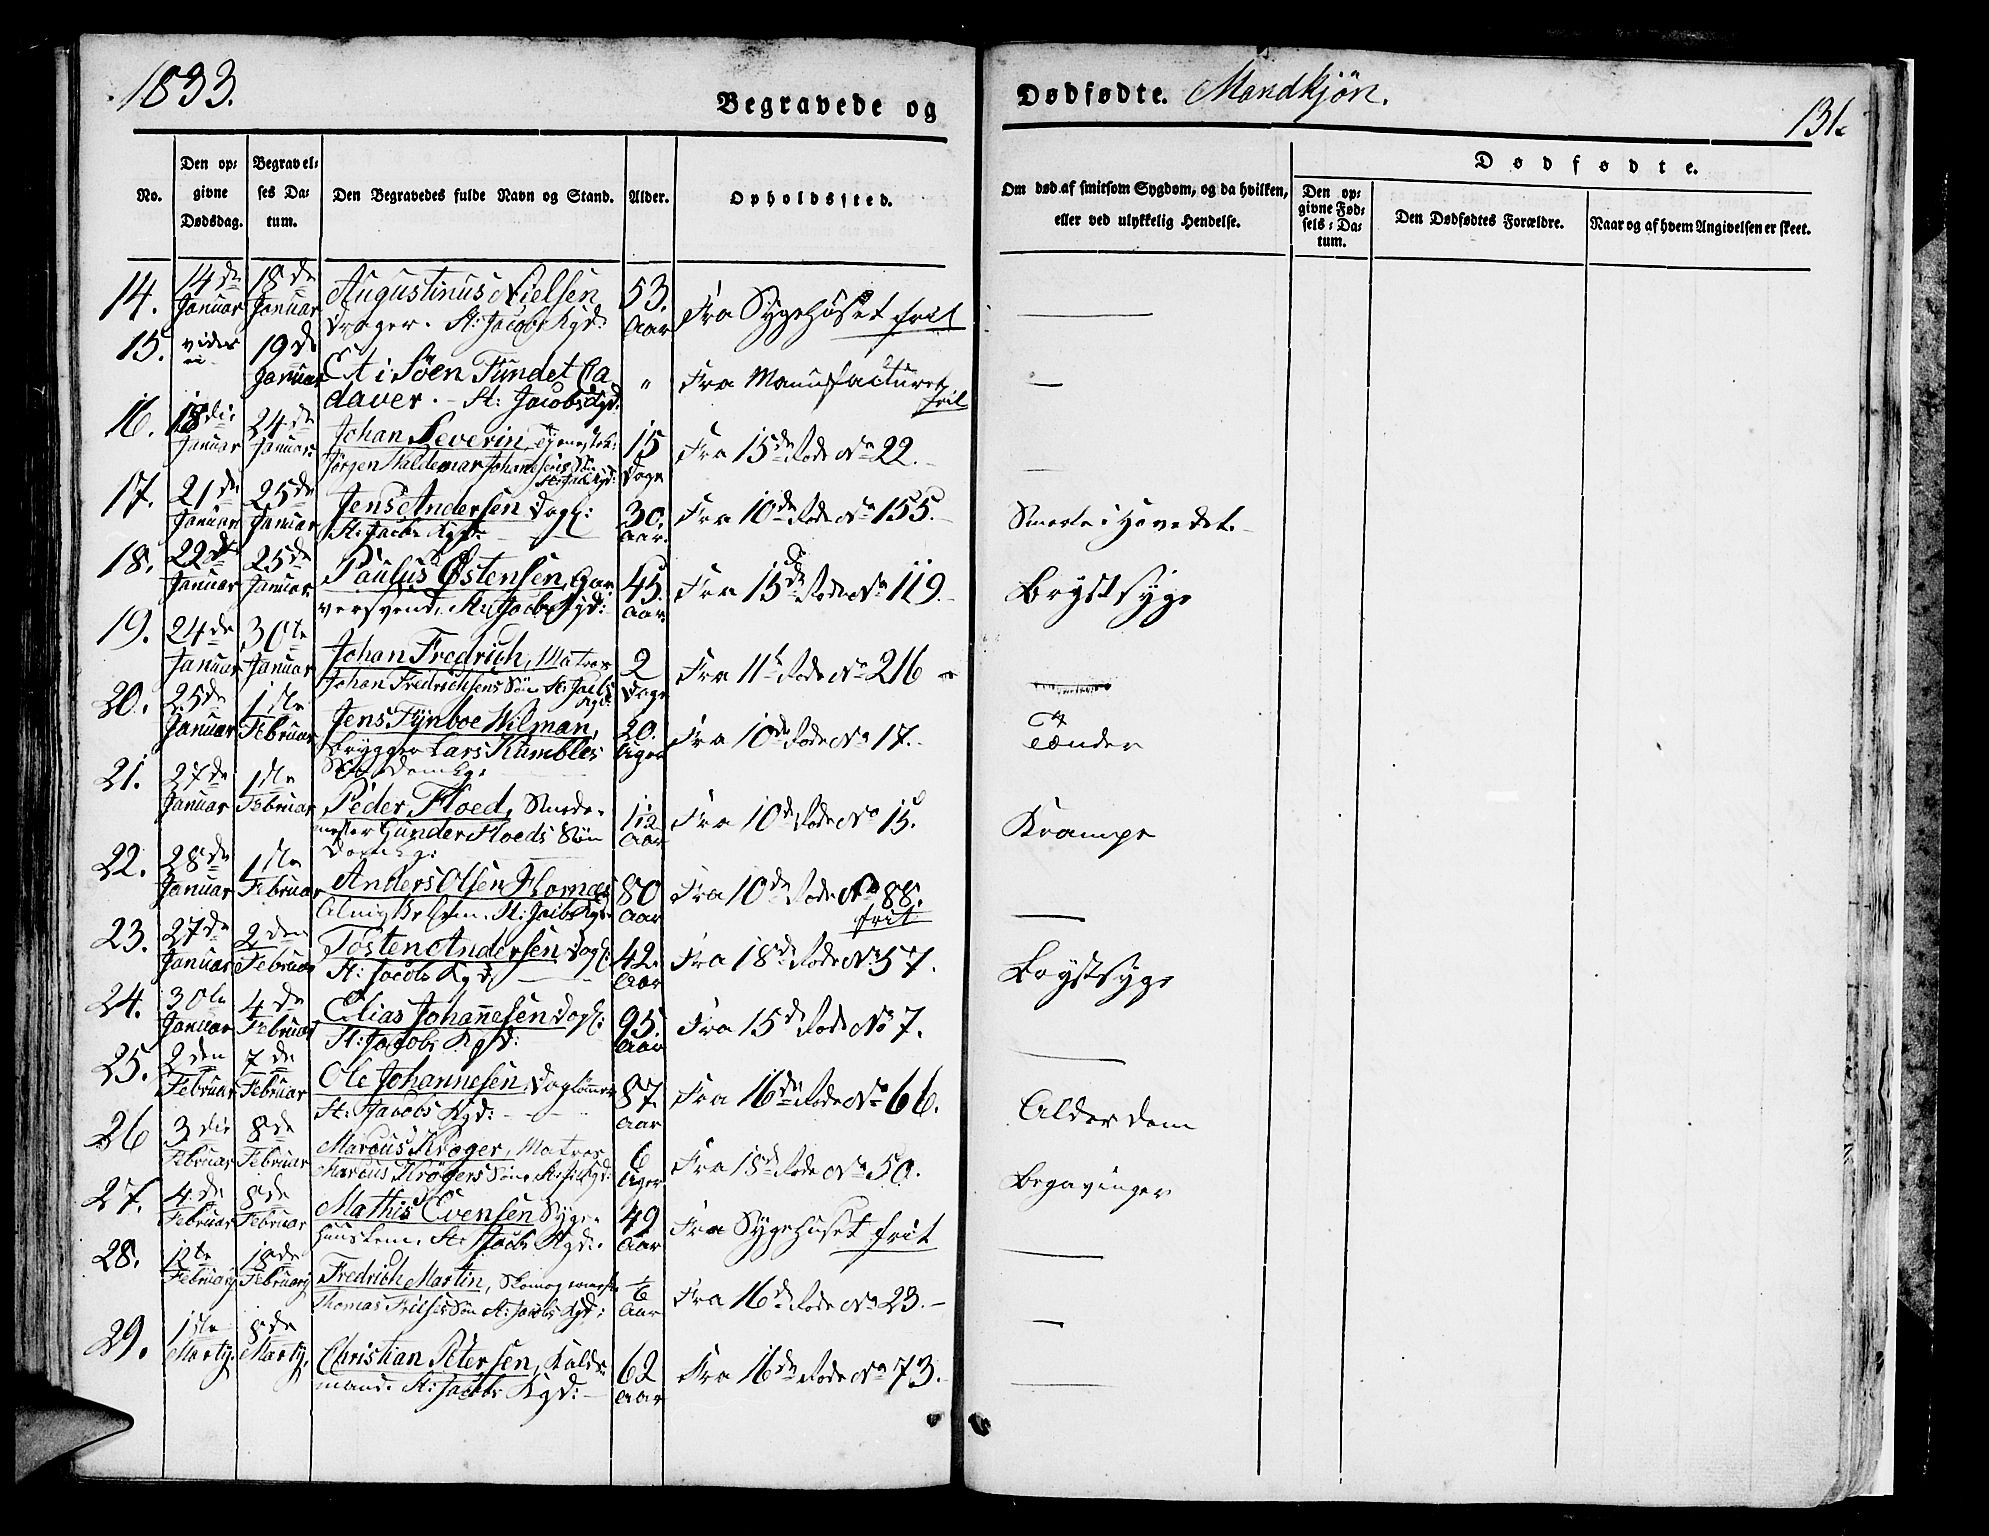 1833.
Begravede og Dødfødte. Mandkjön.
131.
No.
Den opgivne Dødsdag.
Begravelses Datum.
Den Begravedes fulde Navn og Stand.
Alder.
Opholdssted.
Om død af smitsom Sygdom, og da hvilken, eller ved ulykkelig Hendelse.
Dødfødte.
Den opgivne Fødsels-Datum.
Den Dødfødtes Forældre.
Naar og af hvem Angivelsen er skeet.
14. 14de Januar 18de Januar Augustinus Nielsen 53. Aar Fra Sygehuset frit
Drager. St: Jacobs Kgd:
15. 19de Januar Et i Söen Fundet Ca " Fra Manufacturet frit
daver. - St: Jacobs Kgd:
16. 18de Januar 24de Januar Johan Severin, 15 Dage Fra 15de Rode No 22.
Jørgen Waldemar Johansens Sön
17. 21de Januar 25de Januar Jens Andersen Dagl: 30. Aar. Fra 10de Rode No 155. Smerte i Hovedet.
St: Jacobs Kgd:
18. 22de Januar 25de Januar Paulus Østensen, Gar 45. Aar. Fra 15de Rode No 119. Brystsyge
versvend, St: Jacobs Kgd:
19. 24de Januar 30te Januar Johan Fredrich, Matros 2 Dage Fra 11te Rode No 216
Johan Fredrichsens Sön St: Jacobs Kgd:
20. 25de Januar 1ste Februar Jens Fynboe Wilman, 20. Uger Fra 10de Rode No 17. Tænder
Brygger Lars Kumbles
Sön Domkg:
21. 27de Januar 1ste Februar Peder Floed, Smede- 1 1/2 Aar Fra 10de Rode No 15. Krampe
mester Gunder Floeds Sön
Domkg:
22. 28de Januar 1ste Februar Anders Olsen 80 Aar Fra 10de Rode No 88. frit
Almislem. St: Jacobs Kgd:
23. 27de Januar 2den Februar Tosten Andersen Dagl: 42. Aar Fra 18de Rode No 57. Brystsyge
St: Jacobs Kgd:
24. 30te Januar 4de Februar Elias Johannesen Dagl: 95. Aar Fra 15de Rode No 7.
St: Jacobs Kgd:
25. 2den Februar 7de Februar Ole Johannesen, Daglönner 87. Aar Fra 16de Rode No 66. Alderdom
St: Jacobs Kgd:
26 3die Februar 8de Februar Marcus Kröger, Matros 6 Uger Fra 18de Rode No 50. Begavinger
Marcus Krögers Sön. St: J: Kgd:
27. 4de Februar 8de Februar Mathis Evensen Syge- 49 Aar Fra Sygehuset frit
huuslem. St: Jacobs Kgd:
28. 12te Februar 18de Februar Fredrich Martin, Skomagermester Aar Fra 16de Rode No 23.
Thomas Sön St: Jacobs Kgd:
29. 1ste Marty. 8de Marty. Christian Petersen, Kulde 62 Aar Fra 16de Rode No 73.
mand. St: Jacobs Kgd: